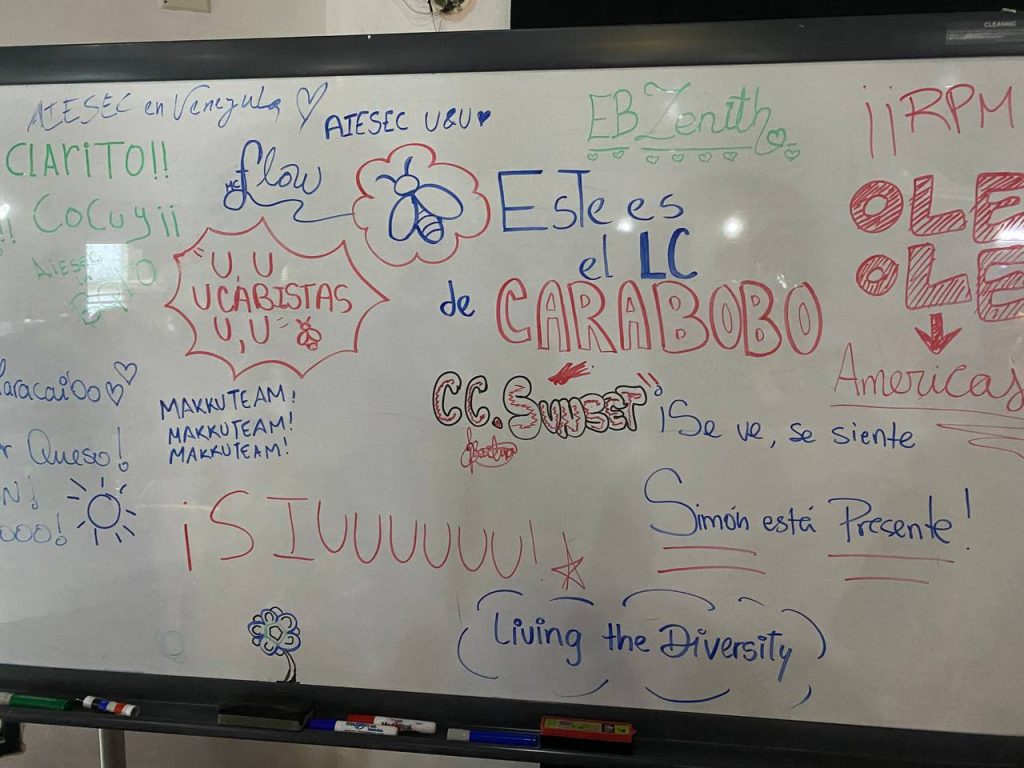 CLEANING
AIESEC en Venezuela
AIESEC U&U
EB Zenith
¡¡RPM
CLARITO!!
MC flow
Este es
el LC
de CARABOBO
OLE
OLE
Americas
!! Cocuy¡¡
AIESEC
"U, U
UCABISTAS
U, U"
aracaibo
MAKKUTEAM!
MAKKUTEAM!
MAKKUTEAM!
CC. SUNSET
¡Se ve, se siente
Simón está Presente!
r Queso!
N!
OOO!
¡SIUUUUUUU!
Living the Diversity